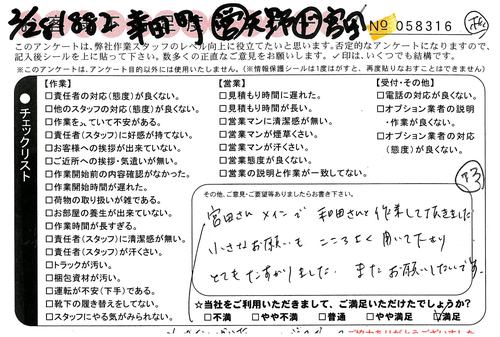 № 058316
このアンケートは、弊社作業スタッフのレベル向上に役立てたいと思います。否定的なアンケートになりますので、
記入後シールを上に貼って下さい。数多くの正直なご意見をお願いします。✓印は、いくつでも結構です。
※このアンケートは、アンケート目的以外には使用いたしません。(※情報保護シールは1度はがすと、再度貼りなおすことはできません)
チェックリスト
【作業】
□責任者の対応(態度)が良くない。
□他のスタッフの対応(態度)が良くない。
□作業をっていて不安がある。
□責任者(スタッフ)に好感が持てない。
□お客様への挨拶が出来ていない。
□ご近所への挨拶・気遣いが無い。
□作業開始前の内容確認がなかった。
□作業開始時間が遅れた。
□荷物の取り扱いが雑である。
□お部屋の養生が出来ていない。
□作業時間が長すぎる。
□責任者(スタッフ)に清潔感が無い。
□責任者(スタッフ)が汗くさい。
□トラックが汚い。
□梱包資材が汚い。
□運転が不安(下手)である。
□靴下の履き替えをしてない。
□スタッフにやる気がみられない。
【営業】
□見積もり時間に遅れた。
□見積もり時間が長い。
□営業マンに清潔感が無い。
□営業マンが煙草くさい。
□営業マンが汗くさい。
□営業態度が良くない。
□営業の説明と作業が一致してない。
【受付・その他】
□電話の対応が良くない。
□オプション業者の説明
・作業が良くない。
□オプション業者の対応
(態度)が良くない。
その他、ご意見・ご要望等ありましたらお書き下さい。
宮田さん メインで 和田さんと作業して頂きました
小さなお願いも こころよく 聞いて下さり
とてもたすかりました. またお願いしたいです。
☆当社をご利用いただきまして、ご満足いただけたでしょうか?
□不満 □やや不満 □普通 □やや満足 ☑満足